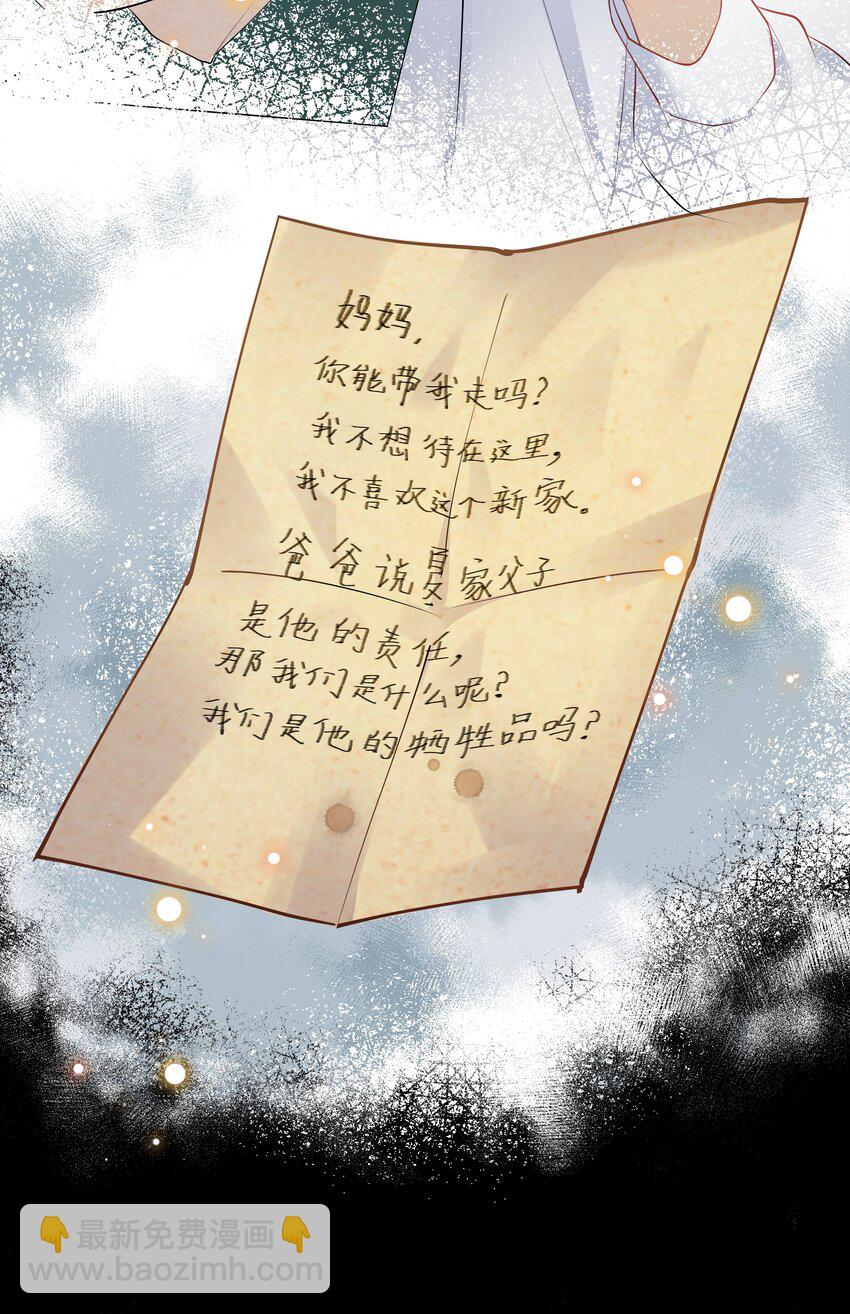 妈妈,
你能带我走吗?
我不想待在这里,
我不喜欢这个新家。
爸爸说夏家父子
是他的责任,
那我们是什么呢?
我们是他的牺牲品吗?
👇最新免费漫画👇
www.baozimh.com